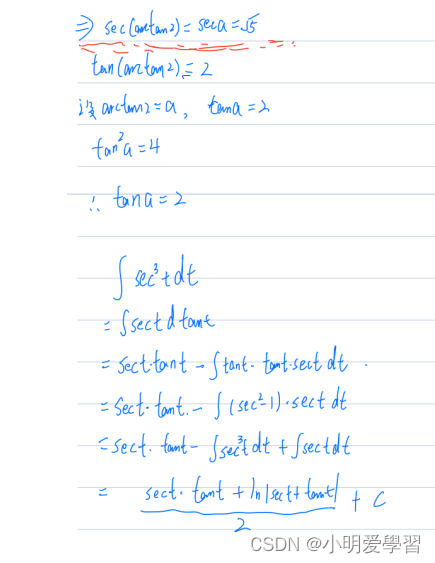 ⇒ sec(arctan2) = sec a = √5
tan(arctan2) = 2
设 arctan2 = a, tan a = 2
tan²a = 4
∴ tan a = 2
∫ sec³t dt
= ∫ sect d tant
= sect·tant - ∫ tant·tant·sect dt.
= sect·tant. - ∫ (sec²-1)·sect dt
= sect·tant - ∫ sec³t dt + ∫ sect dt
= (sect·tant + ln|sect+tant|)/2 + C
CSDN @小明爱學習